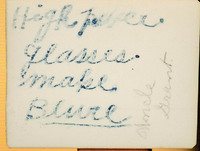 High
glasses.
make
Blure
Uncle
Grant